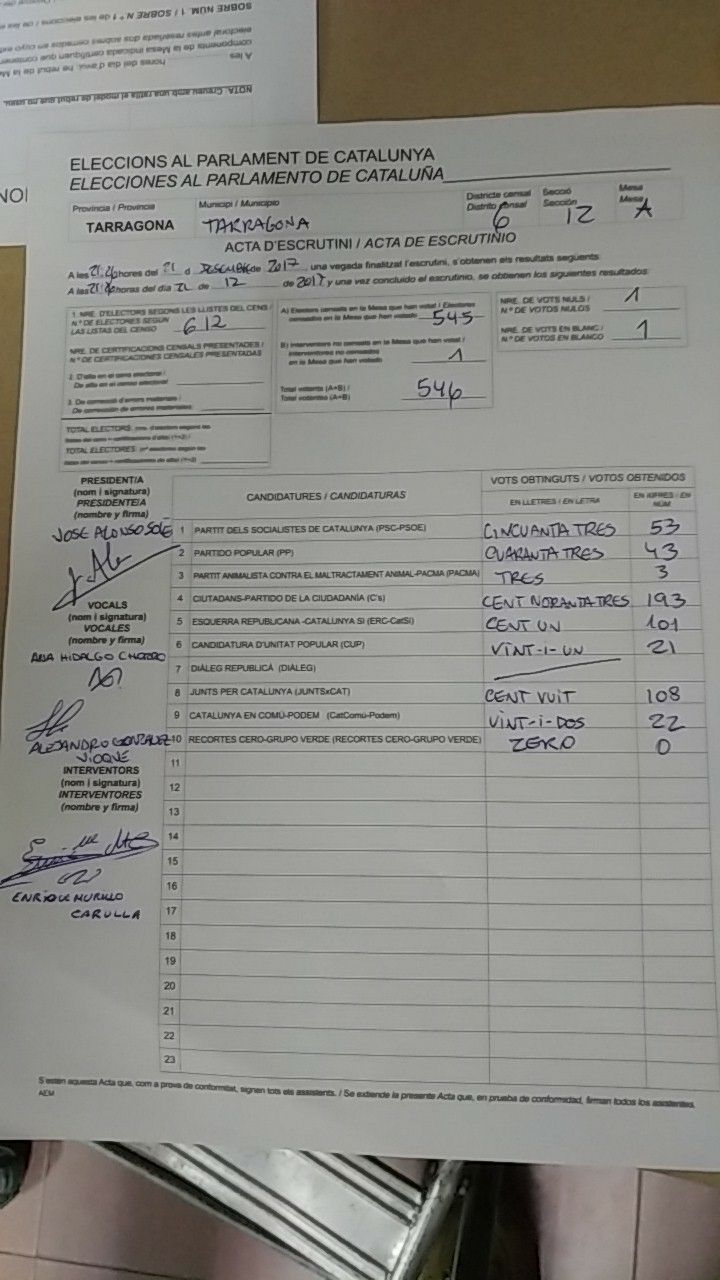 SOBRE NÚM. 1 / SOBRE N.º 1 de les eleccions / de las
electoral antes reseñada dos sobres cerrados en cuyo
components de la Mesa indicada certifiquen que
A les hores del dia d'avui, he rebut de la
NOTA: Creueu amb una ratlla el model de rebut que no
NO
ELECCIONS AL PARLAMENT DE CATALUNYA
ELECCIONES AL PARLAMENTO DE CATALUÑA
Província / Provincia
TARRAGONA
Municipi / Municipio
TARRAGONA
Districte censal
Distrito censal
6
Secció
Sección
12
Mesa
Mesa
A
ACTA D'ESCRUTINI / ACTA DE ESCRUTINIO
A les hores del 21 d DESEMBRE de 2017, una vegada finalitzat l'escrutini, s'obtenen els resultats següents:
A las horas del día 21 de 12 de 2017 y una vez concluido el escrutinio, se obtienen los siguientes resultados:
1. NRE. D'ELECTORS SEGONS LES LLISTES DEL CENS /
N.º DE ELECTORES SEGÚN
LAS LISTAS DEL CENSO 612
NRE. DE CERTIFICACIONS CENSALS PRESENTADES /
N.º DE CERTIFICACIONES CENSALES PRESENTADAS
2. D'alta en el cens electoral /
De alta en el censo electoral
3. De correcció d'errors materials /
De corrección de errores materiales
TOTAL ELECTORS (nre. d'electors segons les
llistes del cens + certificacions d'altes) (1+2) /
TOTAL ELECTORES (nº electores según las
listas del censo + certificaciones de altas) (1+2)
A) Electors censats en la Mesa que han votat / Electores
censados en la Mesa que han votado 545
B) Interventors no censats en la Mesa que han votat /
Interventores no censados
en la Mesa que han votado 1
Total votants (A+B) /
Total votantes (A+B) 546
NRE. DE VOTS NULS /
N.º DE VOTOS NULOS 1
NRE. DE VOTS EN BLANC /
N.º DE VOTOS EN BLANCO 1
PRESIDENT/A
(nom i signatura)
PRESIDENTE/A
(nombre y firma)
JOSE ALONSO SOLÉ
VOCALS
(nom i signatura)
VOCALES
(nombre y firma)
ANA HIDALGO
ALEJANDRO GONZALEZ
VIOQUE
INTERVENTORS
(nom i signatura)
INTERVENTORES
(nombre y firma)
ENRIQUE MURILLO
CARULLA
CANDIDATURES / CANDIDATURAS
VOTS OBTINGUTS / VOTOS OBTENIDOS
EN LLETRES / EN LETRA
EN XIFRES / EN NÚM
1 PARTIT DELS SOCIALISTES DE CATALUNYA (PSC-PSOE) CINCUANTA TRES 53
2 PARTIDO POPULAR (PP) QUARANTA TRES 43
3 PARTIT ANIMALISTA CONTRA EL MALTRACTAMENT ANIMAL-PACMA (PACMA) TRES 3
4 CIUTADANS-PARTIDO DE LA CIUDADANÍA (C's) CENT NORANTA TRES 193
5 ESQUERRA REPUBLICANA -CATALUNYA SÍ (ERC-CatSí) CENT UN 101
6 CANDIDATURA D'UNITAT POPULAR (CUP) VINT-I-UN 21
7 DIÀLEG REPUBLICÀ (DIÀLEG)
8 JUNTS PER CATALUNYA (JUNTSxCAT) CENT VUIT 108
9 CATALUNYA EN COMÚ-PODEM (CatComú-Podem) VINT-I-DOS 22
10 RECORTES CERO-GRUPO VERDE (RECORTES CERO-GRUPO VERDE) ZERO 0
11
12
13
14
15
16
17
18
19
20
21
22
23
S'estén aquesta Acta que, com a prova de conformitat, signen tots els assistents. / Se extiende la presente Acta que, en prueba de conformidad, firman todos los asistentes.
AEM